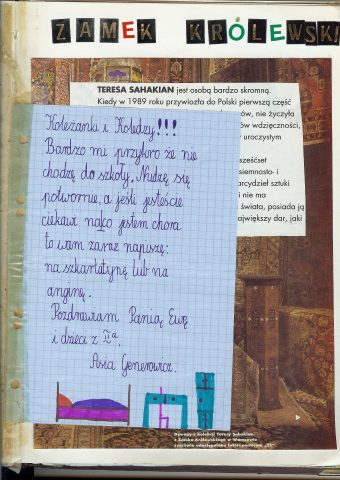 ZAMEK KRÓLEWSKI
TERESA SAHAKIAN jest osobą bardzo skromną.
Kiedy w 1989 roku przywiozła do Polski pierwszą część
ów, nie życzyła
ów wdzięczności,
uroczystym
sześćset
siemnasto- i
arcydzieł sztuki
i nie ma
świata, posiada ją
największy dar, jaki
Koleżanki i Koledzy!!!
Bardzo mi przykro że nie
chodzę do szkoły. Nudzę się
potwornie, a jeśli jesteście
ciekawi na co jestem chora
to wam zaraz napiszę:
na szkarlatynę lub na
anginę.
Pozdrawiam Panią Ewę
i dzieci z IIa.
Asia Generowicz.
Dywany z kolekcji Teresy Sahakian
w Zamku Królewskim w Warszawie